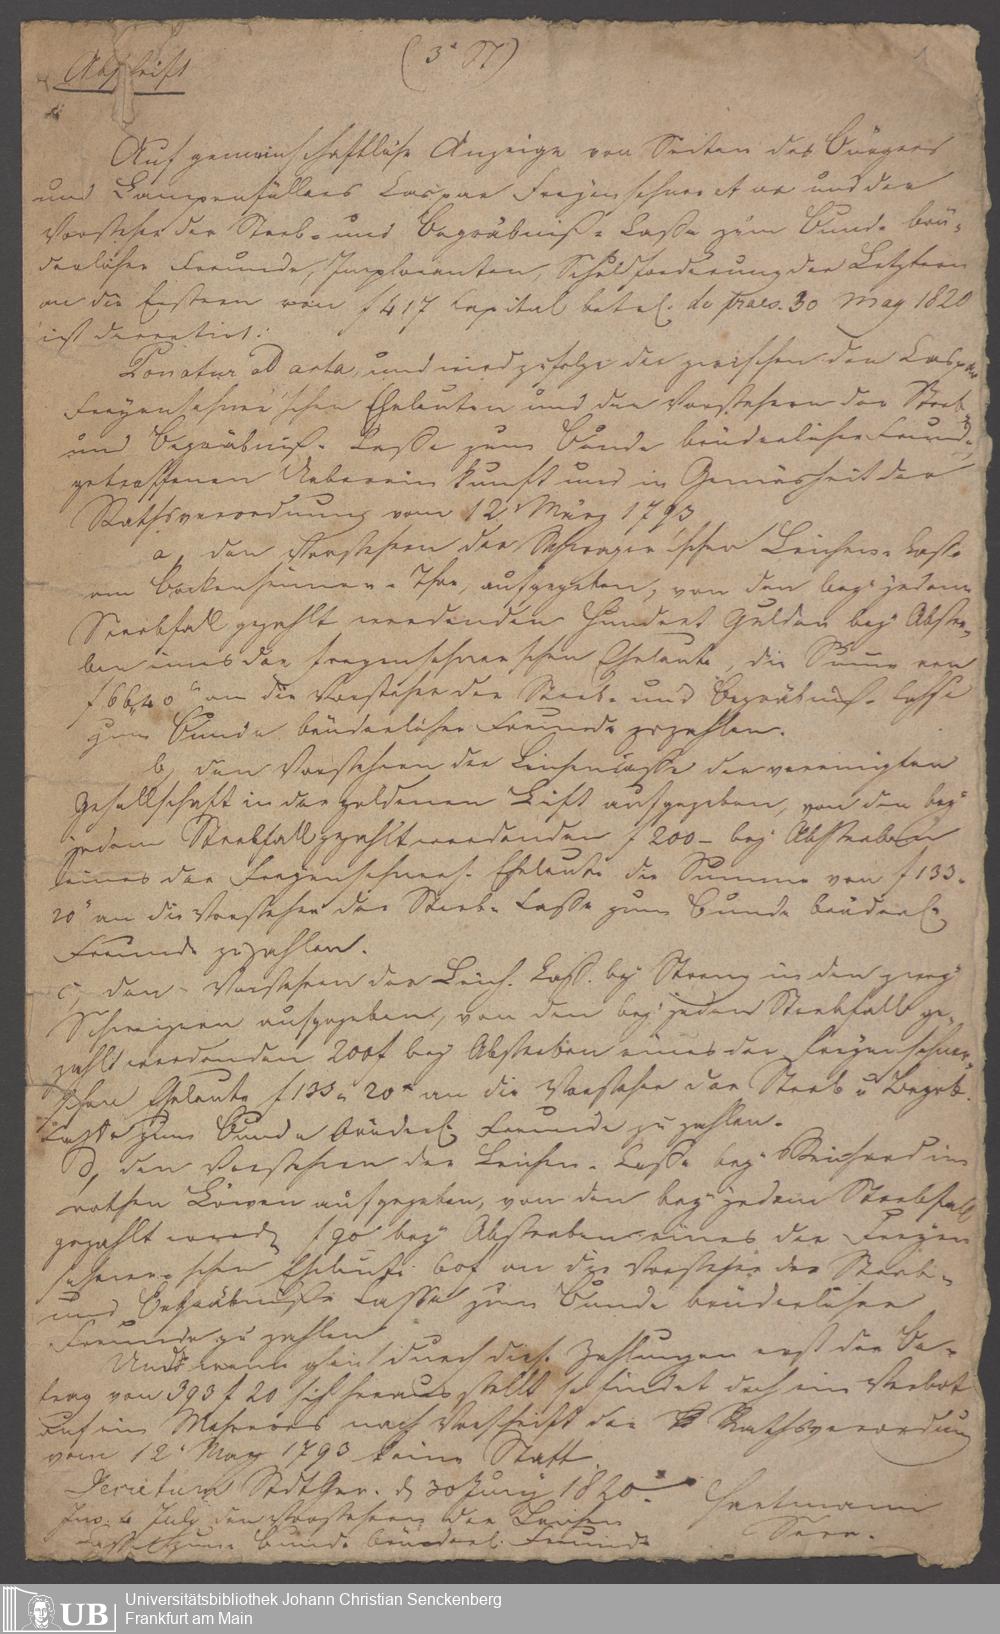 Abschrift
(3te St)
1
Auf gemeinschaftliche Anzeige von Seiten des Bürgers
und Lampenfüllers Caspar Freyenschner et ux und der
Vorsteher der Sterb- und Begräbniß-Casse zum Bund brü-
derlicher Freunde, Imploranten, Schuldforderung der Letztern
an die Erstern von f 417 Capital betrl. de praes. 30 May 1820
ist decretirt:
Ponatur ad acta, und wird zufolge der zwischen den Caspar
Freyenschner'schen Eheleuten und den Vorstehern der Sterb-
und Begräbniß-Casse zum Bunde brüderlicher Freunde,
getroffenen Uebereinkunft und in Gemäsheit der
Rathsverordnung vom 12 März 1793
a, den Vorstehern der 'schen Leichen-Casse
am Bockenheimer-Thor, aufgegeben, von den bey jedem
Sterbfall gezahlt werdenden Hundert Gulden bey Abster-
ben eines der Freyenschnerschen Eheleute, die Summe von
f 66,,40 xr an die Vorsteher der Sterb- und Begräbniß-Casse
zum Bunde brüderlicher Freunde zu zahlen.
b, den Vorstehern der Leichencasse der vereinigten
Gesellschaft in der goldenen Luft aufgegeben, von den bey
jedem Sterbfall gezahlt werdenden f 200- bey Absterben
eines der Freyenschners. Eheleute die Summe von f 133.
20 xr an die Vorsteher der Sterb-Casse zum Bunde brüderl.
Freunde zu zahlen.
c, den Vorstehern der Leich. Cass. bey Streng in den zwey
Schweizern aufgegeben, von den bey jedem Sterbfall ge-
zahlt werdenden 200f bey Absterben eines der Freyenschner-
schen Eheleute f 133,, 20 xr an die Vorsteher der Sterb u Begrb.
Casse zum Bunde brüderl. Freunde zu zahlen.
d, den Vorstehern der Leichen-Casse bey Reichard im
rothen Löwen aufgegeben, von den bey jedem Sterbfall
gezahlt werd. f 90 bey Absterben eines der Freyen
schnerschen Eheleute 60f an die Vorsteher der Sterb-
und Begräbniße Casse zum Bunde brüderlicher
Freunde zu zahlen
Und wenn gleich durch diese Zahlungen erst der Be-
trag von 393 f 20 sich herausstellt so findet doch ein Verbot
auf ein Mehreres nach Vorschrift der Rathsverordnung
vom 12 May 1793 keine Statt.
Decretum StdtGer. d 30 Juny 1820.
Hartmann
Secr.
Ins. 4 July den Vorstehern der Leichen
Casse zum Bunde brüderl. Freunde
Universitätsbibliothek Johann Christian Senckenberg
Frankfurt am Main
UB